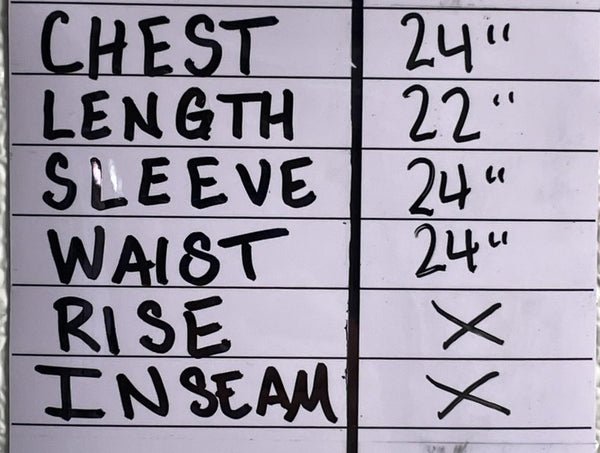 CHEST 24"
LENGTH 22"
SLEEVE 24"
WAIST 24"
RISE X
INSEAM X